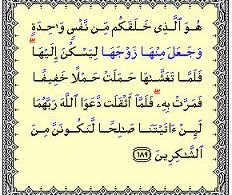 هُوَ ٱلَّذِى خَلَقَكُم مِّن نَّفْسٍ وَٰحِدَةٍ
وَجَعَلَ مِنْهَا زَوْجَهَا لِيَسْكُنَ إِلَيْهَا ۖ
فَلَمَّا تَغَشَّىٰهَا حَمَلَتْ حَمْلًا خَفِيفًا
فَمَرَّتْ بِهِۦ ۖ فَلَمَّآ أَثْقَلَت دَّعَوَا ٱللَّهَ رَبَّهُمَا
لَئِنْ ءَاتَيْتَنَا صَٰلِحًا لَّنَكُونَنَّ مِنَ
ٱلشَّٰكِرِينَ ١٨٩